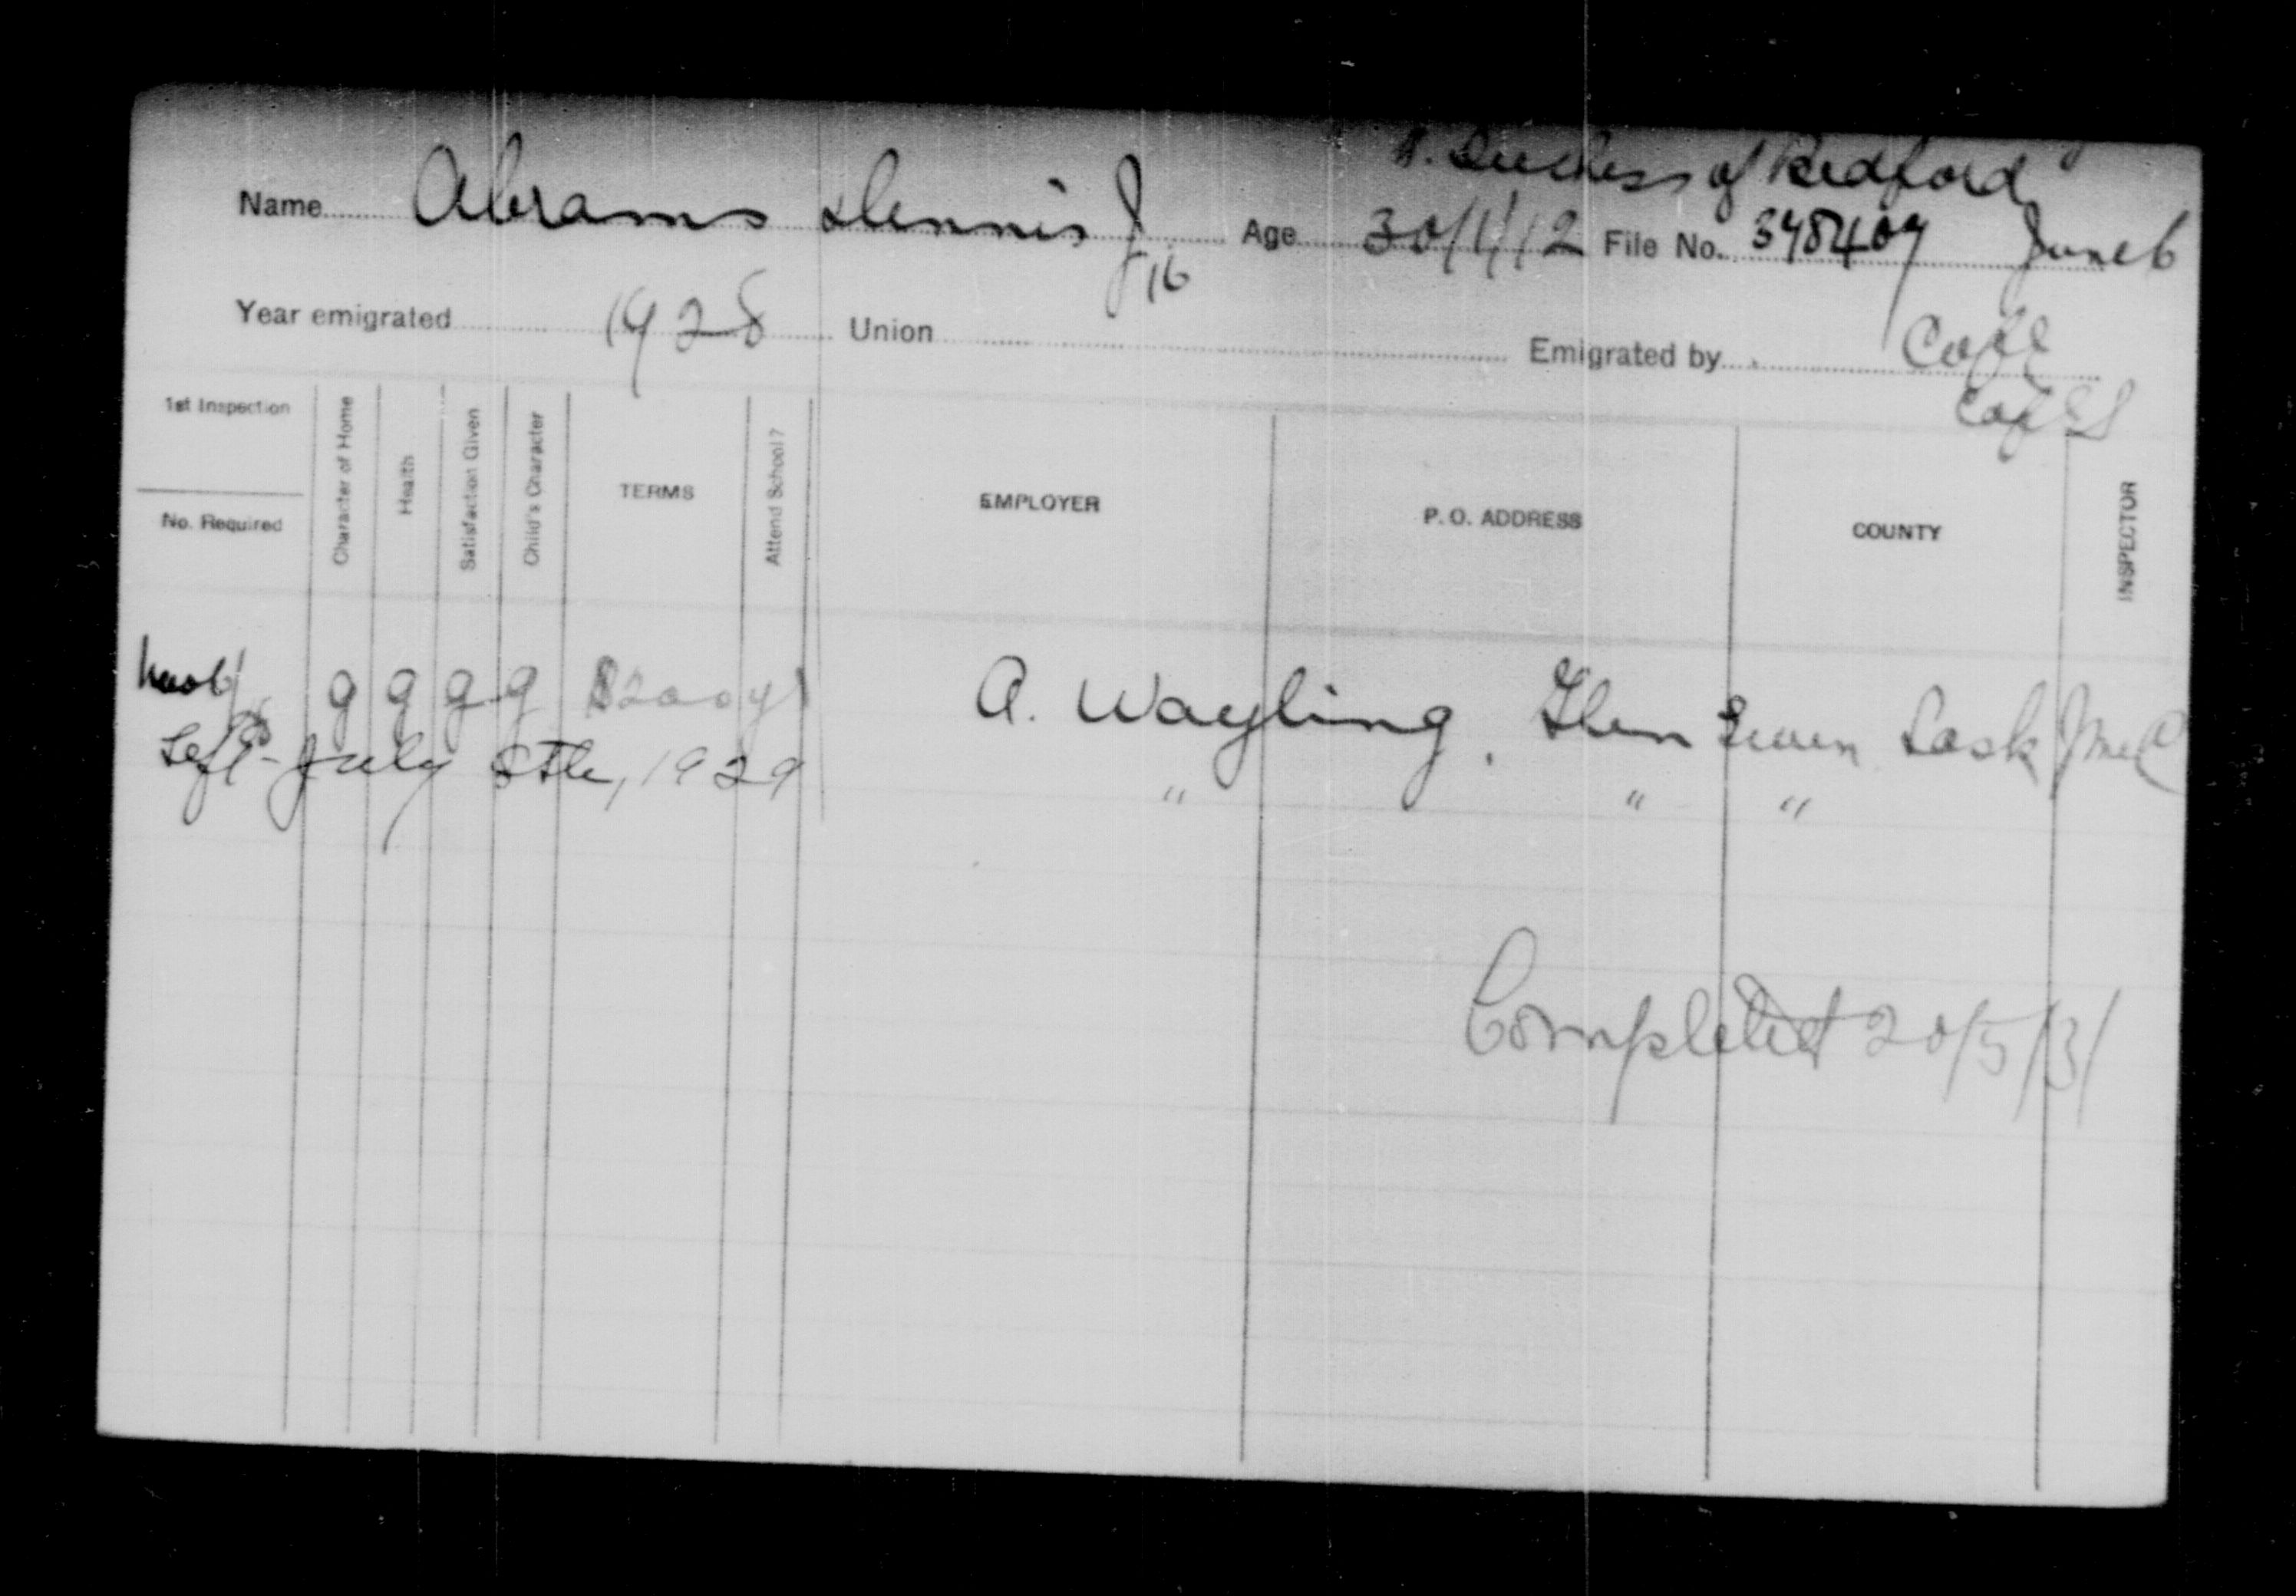 Duchess of Bedford"
Name Abrams Dennis J. Age 30/1/12 File No. 348407 June 6
16
Year emigrated 1928 Union Emigrated by C of E
C of E S
1st Inspection
No. Required
Character of Home
Health
Satisfaction Given
Child's Character
TERMS
Attend School?
EMPLOYER
P. O. ADDRESS
COUNTY
INSPECTOR
g g g g $200 yr A. Wayling. Glen Ewen Sask
Left July 8th, 1929 " " "
Completed 20/5/31